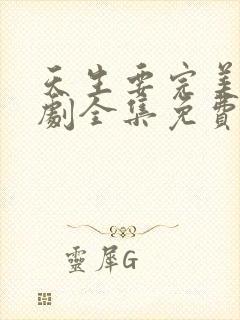 天生要完美
劇全集免費
靈犀G